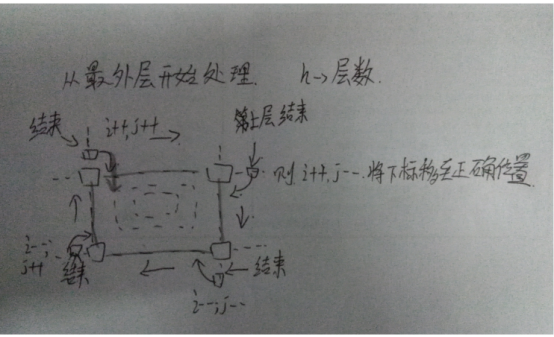 从最外层开始处理. h→层数.
结束 i++,j++ 第1层结束
则 i++,j--.将下标移至正确位置.
i--;
j++ 结束
结束
i--;j--